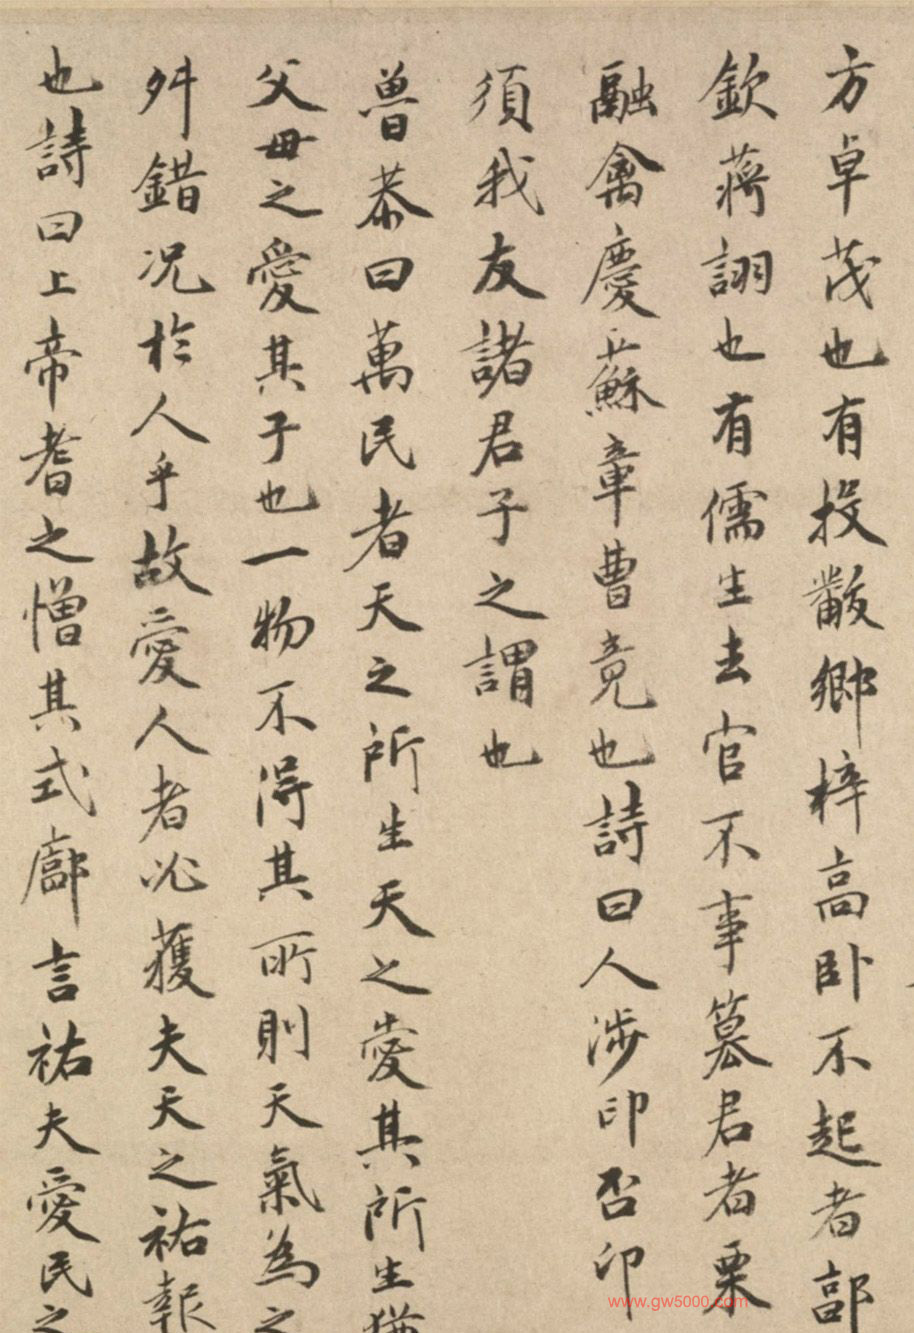 方卓茂也有投黻鄉梓高卧不起者郃
欽蔣詡也有儒生去官不事篡君者栗
融禽慶蘇章曹竟也詩曰人涉卬否卬
須我友諸君子之謂也
魯恭曰萬民者天之所生天之愛其所生猶
父母之愛其子也一物不得其所則天氣為之
舛錯况於人乎故愛人者必獲夫天之祐報
也詩曰上帝耆之憎其式廓言祐夫愛民之
www.gw5000.com